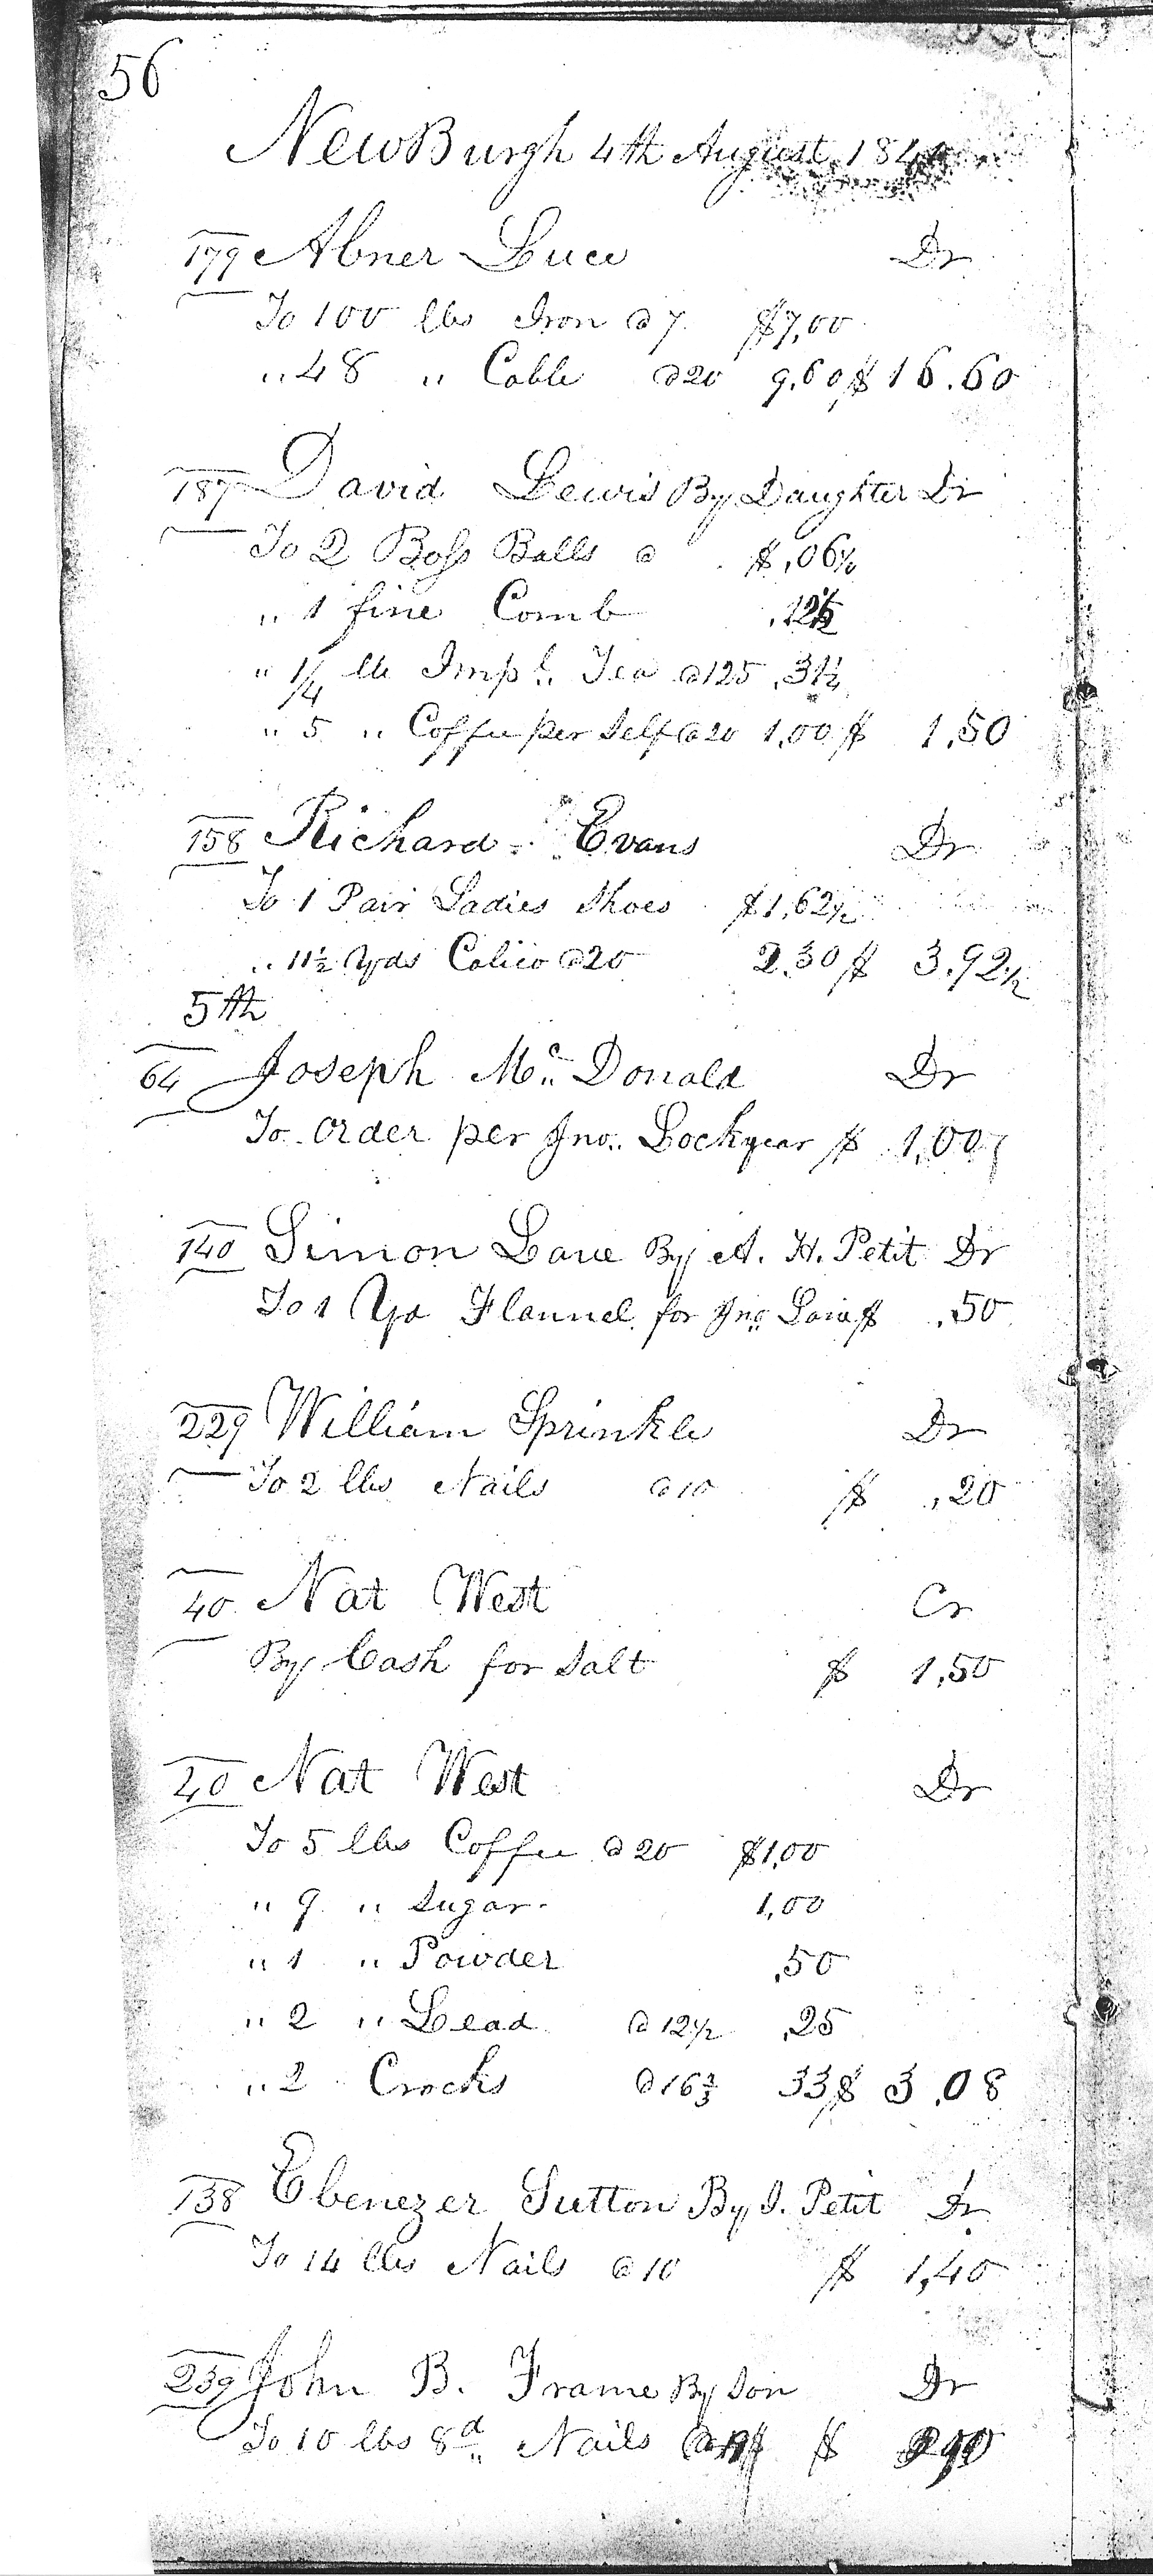 56
NewBurgh 4th August 184
179 Abner Luce Dr
To 100 lbs Iron @ 7 $7,00
" 48 " Cable @20 9,60 $ 16.60
187 David Lewis By Daughter Dr
To 2 Boss Balls @ $,06¼
" 1 fine Comb ,12½
" 1/4 lb Impl. Tea @125 ,31¼
" 5 " Coffee per Self @20 1,00 $ 1,50
158 Richard Evans Dr
To 1 Pair Ladies Shoes $1,62½
" 11½ Yds Calico @20 2,30 $ 3,92½
5th
64 Joseph Mc Donald Dr
To Order per Jno. Lockyear $ 1,00
140 Simon Lane By A. H. Petit Dr
To 1 Yd Flannel for Jno. Lane $ ,50
229 William Sprinkle Dr
To 2 lbs Nails @ 10 $ ,20
40 Nat West Cr
By Cash for Salt $ 1,50
40 Nat West Dr
To 5 lbs Coffee @ 20 $1,00
" 9 " Sugar 1,00
" 1 " Powder ,50
" 2 " Lead @ 12½ ,25
" 2 Crocks @ 16⅔ 33 $ 3.08
138 Ebenezer Sutton By I. Petit Dr
To 14 lbs Nails @ 10 $ 1,40
239 John B. Frame By Son Dr
To 10 lbs 8d Nails $